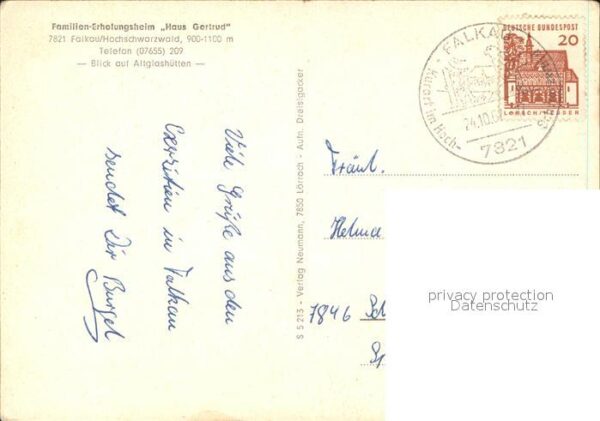 Familien-Erholungsheim „Haus Gertrud"
7821 Falkau/Hochschwarzwald, 900-1100 m
Telefon (07655) 209
— Blick auf Altglashütten —
Viele Grüße aus den
Exerzitien in Falkau
sendet Dir Burgel
S 5 213 - Verlag Neumann, 7850 Lörrach - Aufn. Dreisigacker
DEUTSCHE BUNDESPOST
20
LORSCH/HESSEN
FALKAU
Kurort im Hoch-
24.10.
7821
Fräul.
Helma
7846 Sch
privacy protection
Datenschutz